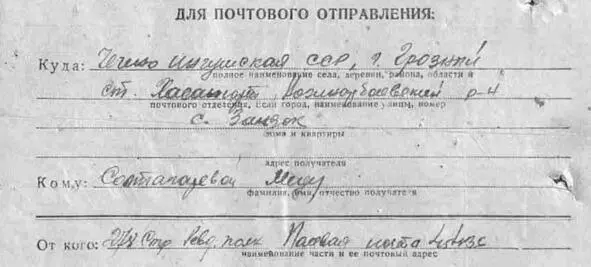 ДЛЯ ПОЧТОВОГО ОТПРАВЛЕНИЯ:
Куда: Чечено Ингушская ССР, г. Грозный
полное наименование села, деревни, района, области и
ст. Хасавюрт р-н
почтового отделения. Если город, наименование улицы, номер
с. Зандак
дома и квартиры
адрес получателя
Кому:
фамилия, имя, отчество получателя
От кого: 278 Стр. полк Полевая почта
наименование части и ее почтовый адрес